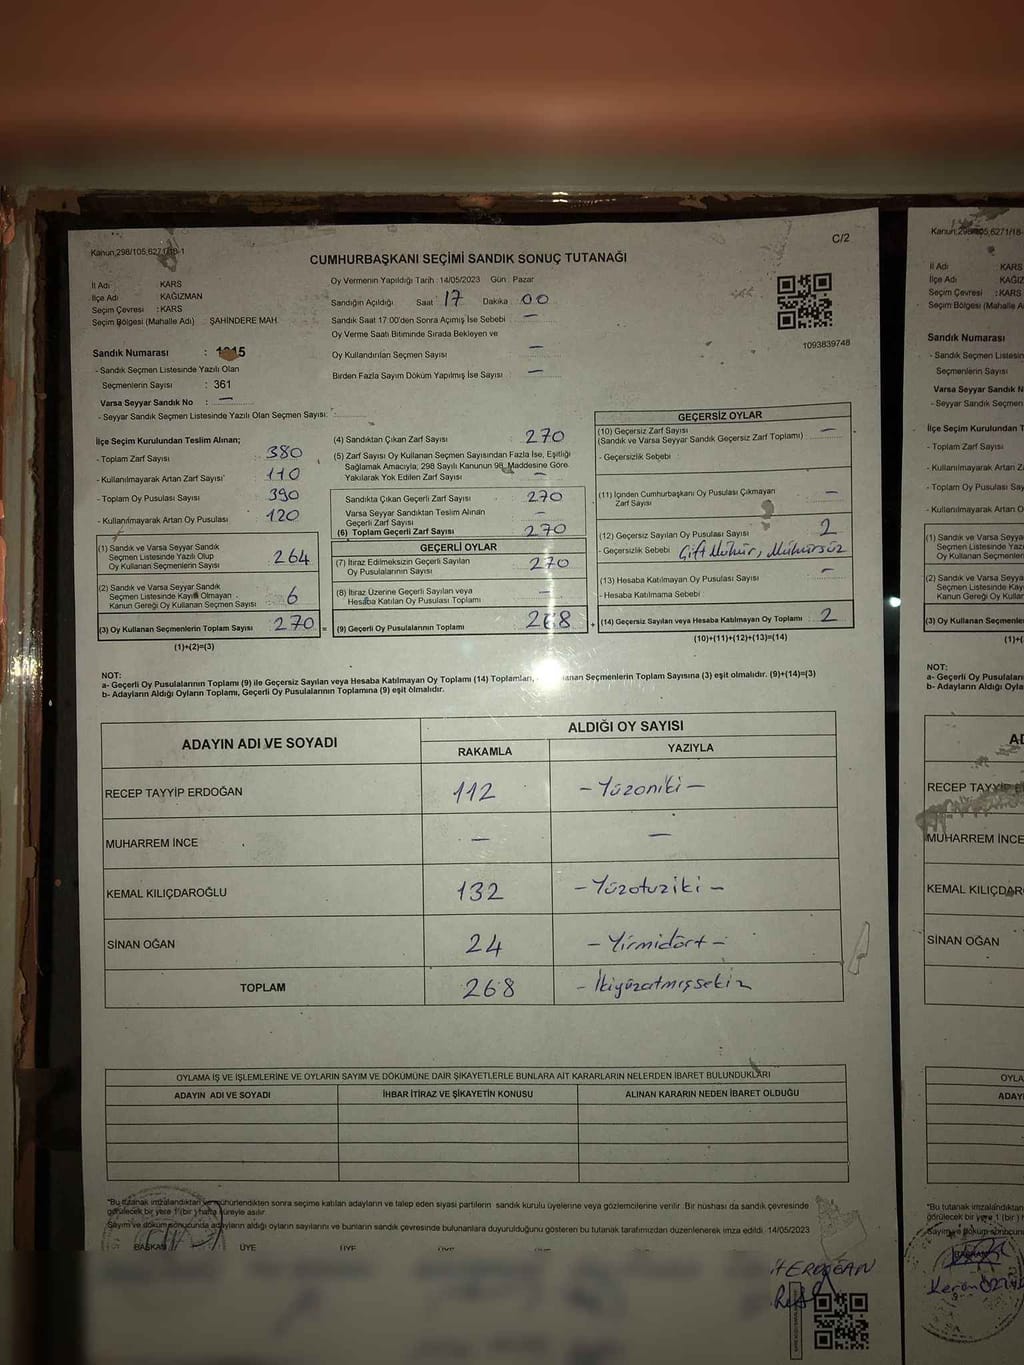 Kanun,298/105,6271/18-1
C/2
CUMHURBAŞKANI SEÇİMİ SANDIK SONUÇ TUTANAĞI
İl Adı : KARS
İlçe Adı : KAĞIZMAN
Seçim Çevresi : KARS
Seçim Bölgesi (Mahalle Adı) : ŞAHİNDERE MAH
Oy Vermenin Yapıldığı Tarih : 14/05/2023 Gün : Pazar
Sandığın Açıldığı Saat : 17 Dakika : 00
Sandık Saat 17:00'den Sonra Açılmış İse Sebebi : —
Oy Verme Saati Bitiminde Sırada Bekleyen ve
Oy Kullandırılan Seçmen Sayısı : —
Birden Fazla Sayım Döküm Yapılmış İse Sayısı : —
1093839748
Sandık Numarası :
- Sandık Seçmen Listesinde Yazılı Olan
Seçmenlerin Sayısı : 361
Varsa Seyyar Sandık No : —
- Seyyar Sandık Seçmen Listesinde Yazılı Olan Seçmen Sayısı:
İlçe Seçim Kurulundan Teslim Alınan;
- Toplam Zarf Sayısı : 380
- Kullanılmayarak Artan Zarf Sayısı : 110
- Toplam Oy Pusulası Sayısı : 390
- Kullanılmayarak Artan Oy Pusulası : 120
(1) Sandık ve Varsa Seyyar Sandık
Seçmen Listesinde Yazılı Olup
Oy Kullanan Seçmenlerin Sayısı : 264
(2) Sandık ve Varsa Seyyar Sandık
Seçmen Listesinde Kayıtlı Olmayan
Kanun Gereği Oy Kullanan Seçmen Sayısı : 6
(3) Oy Kullanan Seçmenlerin Toplam Sayısı : 270 =
(1)+(2)=(3)
(4) Sandıktan Çıkan Zarf Sayısı : 270
(5) Zarf Sayısı Oy Kullanan Seçmen Sayısından Fazla İse, Eşitliği
Sağlamak Amacıyla, 298 Sayılı Kanunun 98. Maddesine Göre
Yakılarak Yok Edilen Zarf Sayısı : —
Sandıkta Çıkan Geçerli Zarf Sayısı : 270
Varsa Seyyar Sandıktan Teslim Alınan
Geçerli Zarf Sayısı : —
(6) Toplam Geçerli Zarf Sayısı : 270
GEÇERLİ OYLAR
(7) İtiraz Edilmeksizin Geçerli Sayılan
Oy Pusulalarının Sayısı : 270
(8) İtiraz Üzerine Geçerli Sayılan veya
Hesaba Katılan Oy Pusulası Toplamı : —
(9) Geçerli Oy Pusulalarının Toplamı : 268 +
GEÇERSİZ OYLAR
(10) Geçersiz Zarf Sayısı : —
(Sandık ve Varsa Seyyar Sandık Geçersiz Zarf Toplamı)
- Geçersizlik Sebebi :
(11) İçinden Cumhurbaşkanı Oy Pusulası Çıkmayan
Zarf Sayısı : —
(12) Geçersiz Sayılan Oy Pusulası Sayısı : 2
- Geçersizlik Sebebi : Çift Mühür, Mühürsüz
(13) Hesaba Katılmayan Oy Pusulası Sayısı : —
- Hesaba Katılmama Sebebi :
(14) Geçersiz Sayılan veya Hesaba Katılmayan Oy Toplamı : 2
(10)+(11)+(12)+(13)=(14)
NOT:
a- Geçerli Oy Pusulalarının Toplamı (9) ile Geçersiz Sayılan veya Hesaba Katılmayan Oy Toplamı (14) Toplamları, Seçmenlerin Toplam Sayısına (3) eşit olmalıdır. (9)+(14)=(3)
b- Adayların Aldığı Oyların Toplamı, Geçerli Oy Pusulalarının Toplamına (9) eşit olmalıdır.
ADAYIN ADI VE SOYADI
ALDIĞI OY SAYISI
RAKAMLA YAZIYLA
RECEP TAYYİP ERDOĞAN 112 - Yüzoniki -
MUHARREM İNCE — —
KEMAL KILIÇDAROĞLU 132 - Yüzotuziki -
SİNAN OĞAN 24 - Yirmidört -
TOPLAM 268 - İkiyüzatmışsekiz
OYLAMA İŞ VE İŞLEMLERİNE VE OYLARIN SAYIM VE DÖKÜMÜNE DAİR ŞİKAYETLERLE BUNLARA AİT KARARLARIN NELERDEN İBARET BULUNDUKLARI
ADAYIN ADI VE SOYADI İHBAR İTİRAZ VE ŞİKAYETİN KONUSU ALINAN KARARIN NEDEN İBARET OLDUĞU
"Bu tutanak imzalandıktan ve mühürlendikten sonra seçime katılan adayların ve talep eden siyasi partilerin sandık kurulu üyelerine veya gözlemcilerine verilir. Bir nüshası da sandık çevresinde
görülecek bir yere 1 (bir) hafta süreyle asılır.
Sayım ve döküm sonucunda adayların aldığı oyların sayılarını ve bunların sandık çevresinde bulunanlara duyurulduğunu gösteren bu tutanak tarafımızdan düzenlenerek imza edildi. 14/05/2023
BAŞKAN ÜYE ÜYE ÜYE
ERDOĞAN
Kanun,298/105,6271/18-
İl Adı : KARS
İlçe Adı : KAĞIZ
Seçim Çevresi : KARS
Seçim Bölgesi (Mahalle A
Sandık Numarası
- Sandık Seçmen Listesin
Seçmenlerin Sayısı
Varsa Seyyar Sandık N
- Seyyar Sandık Seçmen L
İlçe Seçim Kurulundan T
- Toplam Zarf Sayısı
- Kullanılmayarak Artan Za
- Toplam Oy Pusulası Say
- Kullanılmayarak Artan O
(1) Sandık ve Varsa Seyya
Seçmen Listesinde Yazı
Oy Kullanan Seçmenler
(2) Sandık ve Varsa Seyya
Seçmen Listesinde Kay
Kanun Gereği Oy Kullan
(3) Oy Kullanan Seçmenle
(1)+(
NOT:
a- Geçerli Oy Pusulaları
b- Adayların Aldığı Oyla
AD
RECEP TAYYİP E
MUHARREM İNCE
KEMAL KILIÇDAR
SİNAN OĞAN
OYLA
ADAY
"Bu tutanak imzalandıktan
görülecek bir yere 1 (bir)